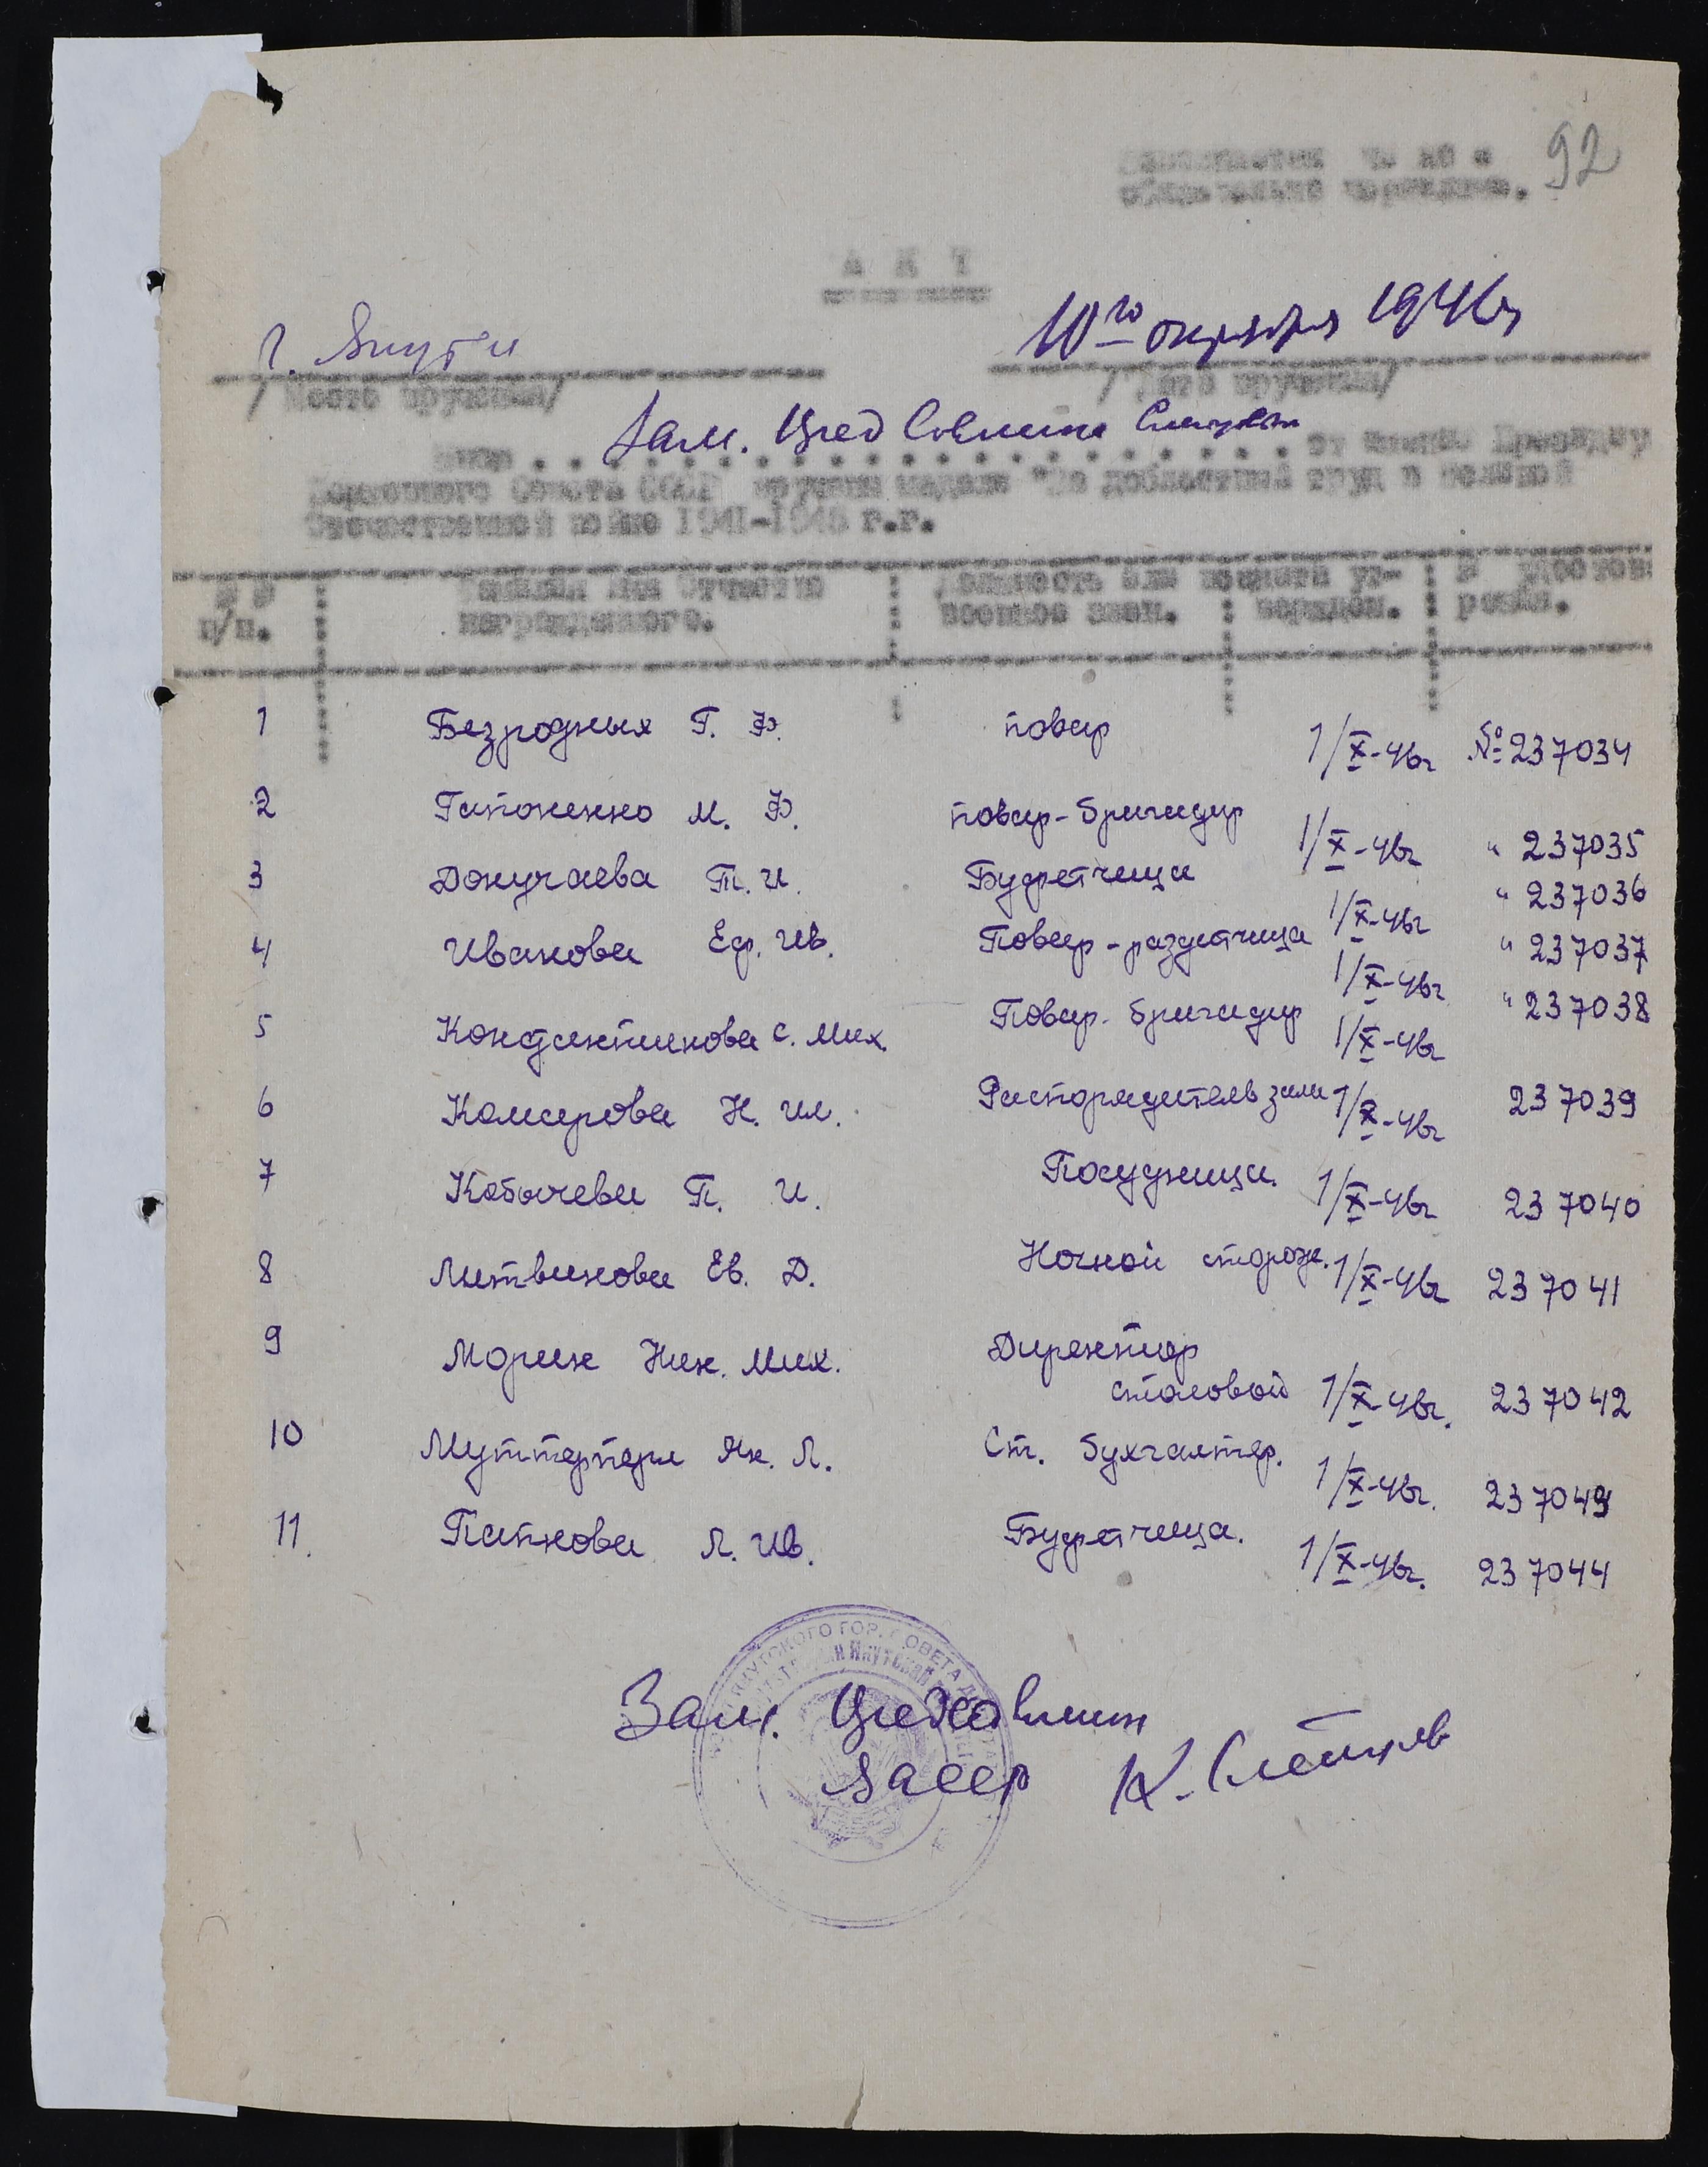 92
А К Т
г. Якутск
10го октября 1946г
/ Место вручения/
/ Дата вручения/
Зам. Пред Совмина Слепцов
Мною . . . . . . . . . . . . . . . . . . . . от имени Президиу
Верховного Совета СССР вручены медали "За доблестный труд в Великой
Отечественной войне 1941-1945 г.г.
№ №
п/п.
Фамилия Имя Отчество
награжденного.
Должность или
военное звание.
№ удостов
1 Безродных Г. Ф. повар 1/X-46г №237034
2 Гапоненко М. Ф. повар-бригадир 1/X-46г " 237035
3 Докучаева Т. И. Буфетчица 1/X-46г " 237036
4 Иванова Еф. Ив. Повар-раздатчица 1/X-46г " 237037
5 С. Мих. Повар-бригадир 1/X-46г " 237038
6 Комарова Н. Ил. Распорядитель зала 1/X-46г 237039
7 Кобычева П. И. Посудница. 1/X-46г 237040
8 Литвинова Ев. Д. Ночной сторож. 1/X-46г 237041
9 Морин Ник. Мих. Директор
столовой 1/X-46г. 237042
10 Муттерперл Як. Л. Ст. бухгалтер. 1/X-46г. 237043
11. Папкова Л. Ив. Буфетчица. 1/X-46г. 237044
Зам. Пред Совмин
ЯАССР К. Слепцов